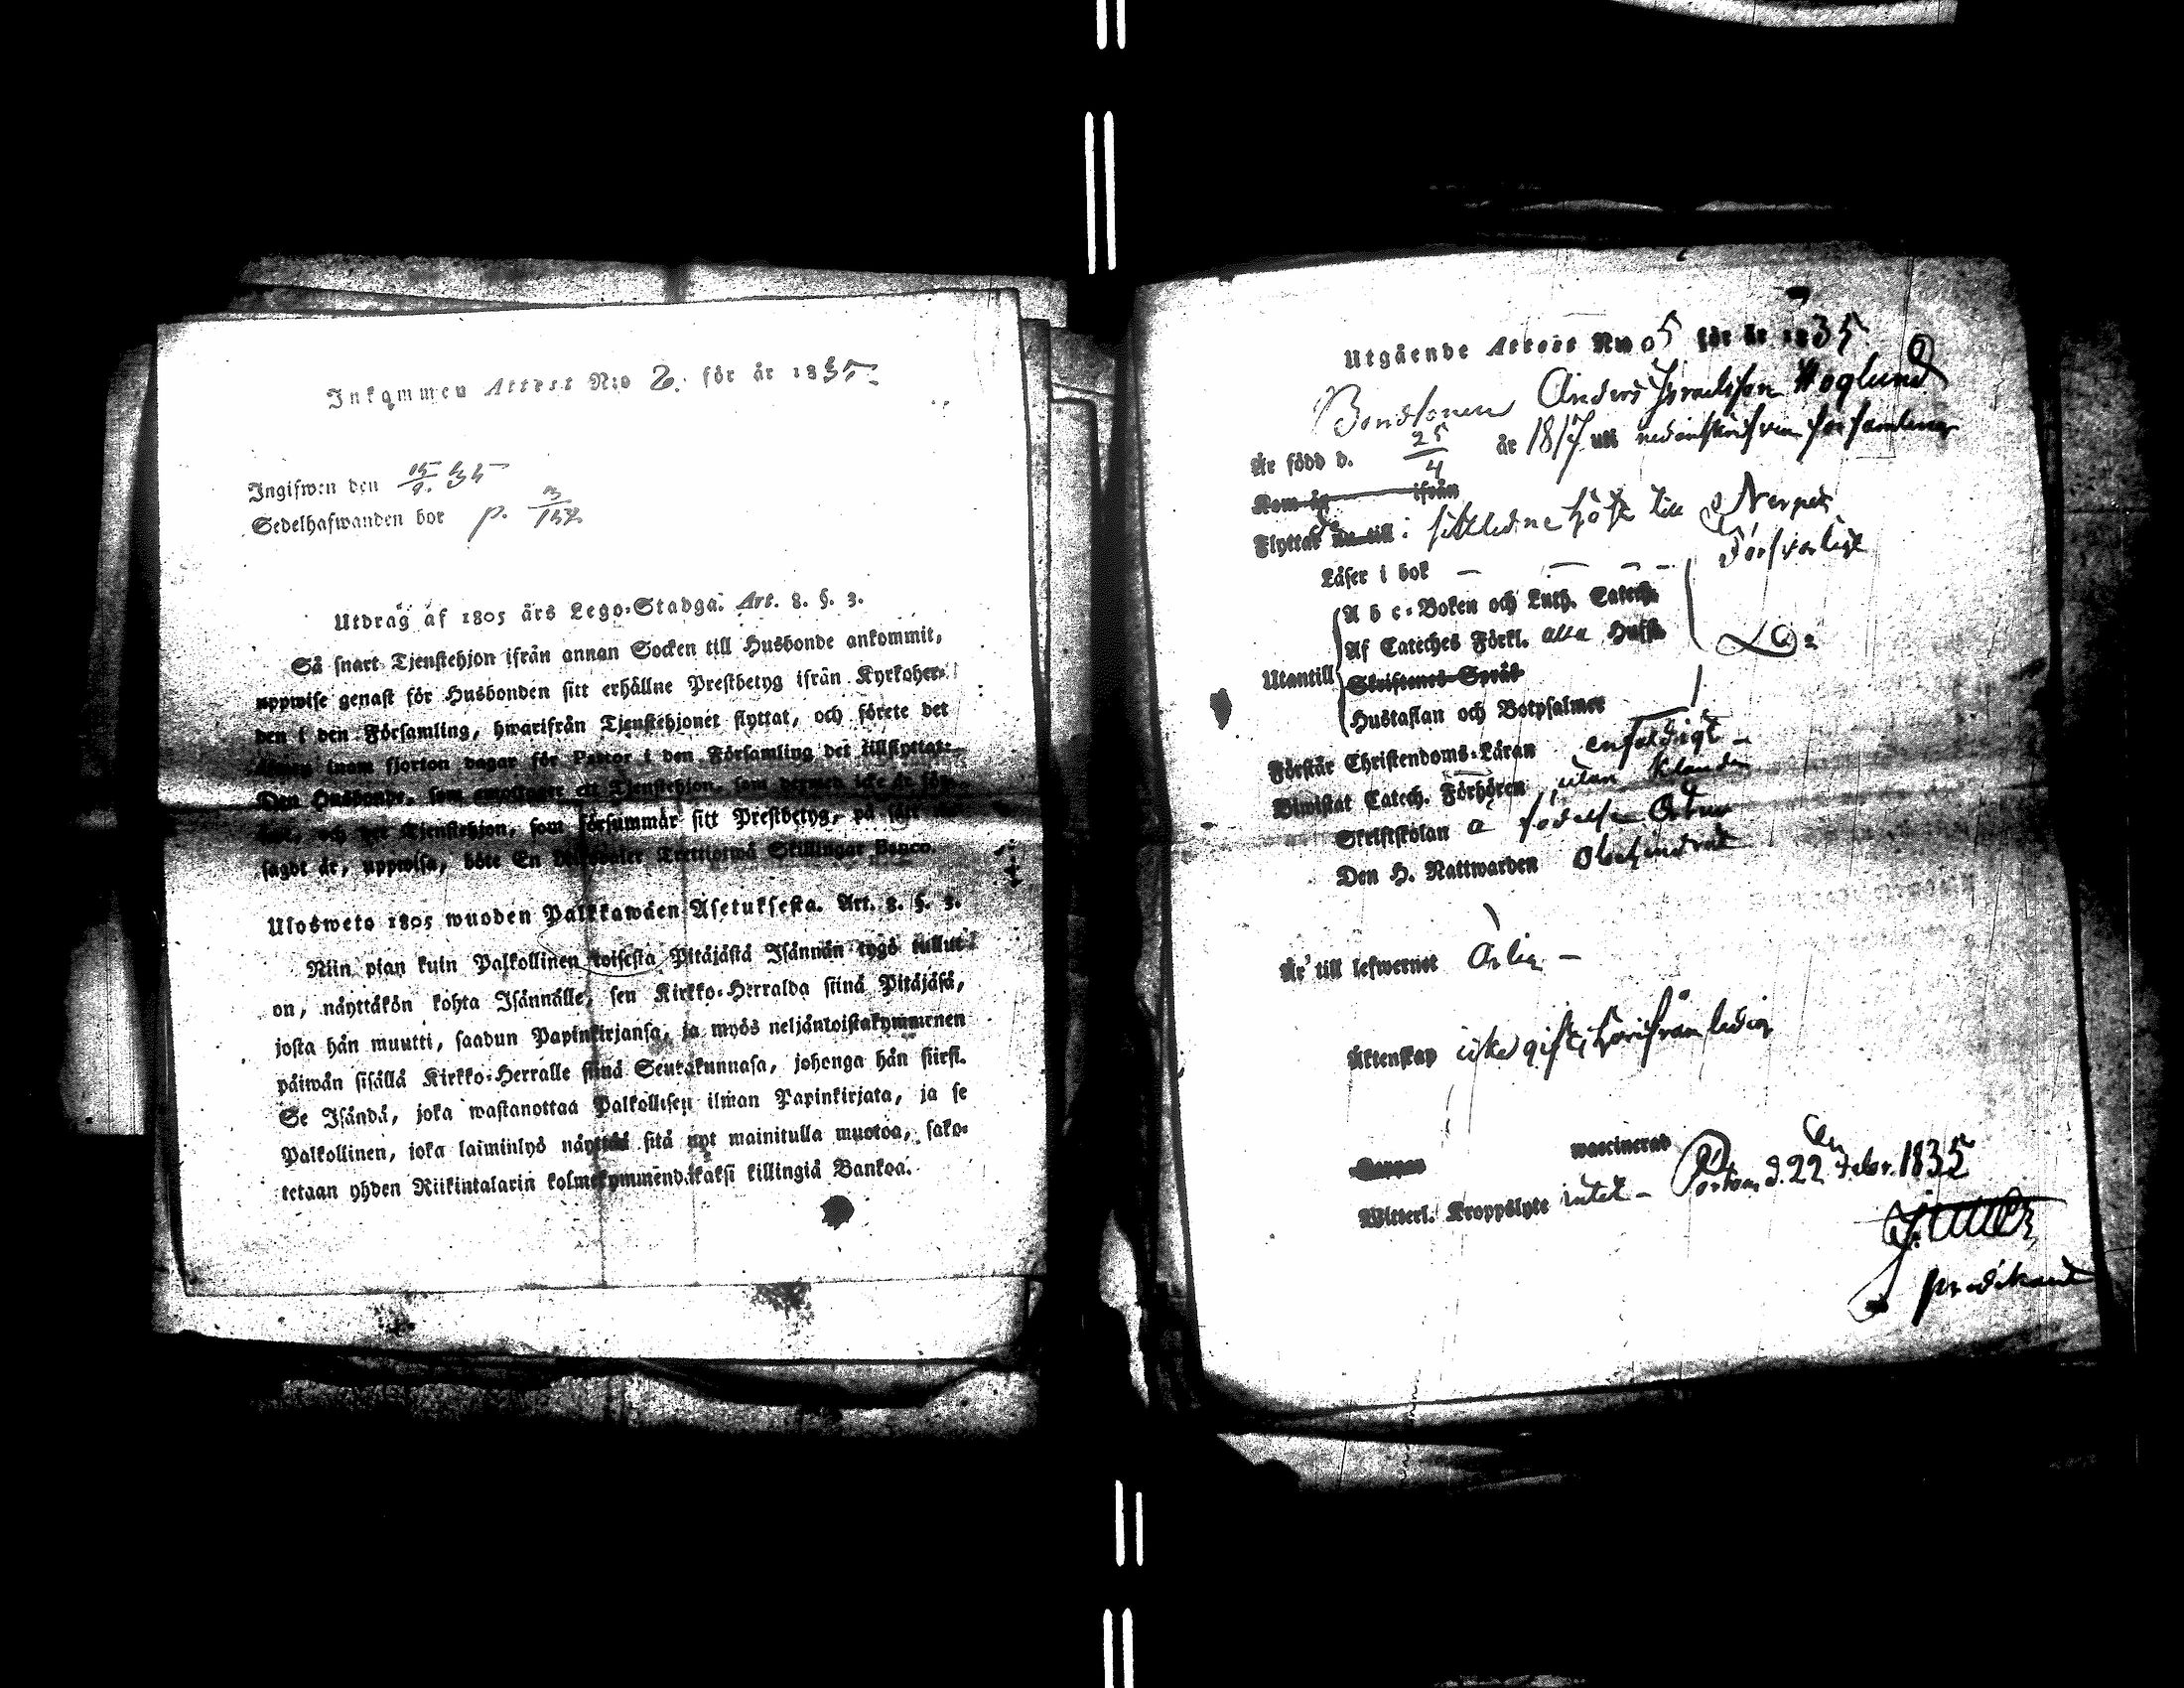 Inkommen Attest N:o 2. för år 1835.
Ingifwen den 15/9. 35
Sedelhafwanden bor p. 3/152
Utdrag af 1805 års Lego-Stadga. Art. 8. §. 3.
Så snart Tjenstehjon ifrån annan Socken till Husbonde ankommit,
uppwise genast för Husbonden sitt erhållne Prestbetyg ifrån Kyrkoher-
den i den Församling, hwarifrån Tjenstehjonet flyttat, och förete det
inom fjorton dagar för Pastor i den Församling det tillflyttat.
Den Husbonde, som emottager ett Tjenstehjon, som dermed icke är för-
och det Tjenstehjon, som försummar sitt Prestbetyg, på sätt
sagdt är, uppwisa, böte En Riksdaler Trettiotwå Skillingar Banco.
Ulosweto 1805 wuoden Palkkawäen Asetuksesta. Art. 8. §. 3.
Niin pian kuin Palkollinen toisesta Pitäjästä Isännän tygö tullut
on, näyttäkön kohta Isännälle, sen Kirkko-Herralda siinä Pitäjäsä,
josta hän muutti, saadun Papinkirjansa, ja myös neljäntoistakymmenen
päiwän sisällä Kirkko-Herralle siinä Seurakunnasa, johonga hän siirst.
Se Isändä, joka wastanottaa Palkollisen ilman Papinkirjata, ja se
Palkollinen, joka laiminlyö näyttää sitä nyt mainitulla muotoa, sako-
tetaan yhden Riikintalarin kolmekymmendäkaksi killingiä Bankoa.
Utgående Attest N:o 5 för år 1835.
Bondsonen Anders Israelsson Höglund
Är född d. 25/4 år 1817 uti nedanskrifven församling
Kom år ifrån
Flyttade nu till: sistledne höst till Nerpes
Läser i bok — — — — Försvarligt
A b c-Boken och Luth. Catech.
Af Cateches Förkl. alla Hufst.
Utantill
Skriftenes Språk
Hustaflan och Botpsalmer
Förstår Christendoms-Läran enfaldigt —
Biwistat Catech. Förhören utan klander
Skriftskolan å födelse Orten
Den H. Nattwarden obehindrat
Är till lefwernet Ärlig —
Äktenskap icke gift, härifrån ledig
Koppor waccinerad
Witterl. Kroppslyte intet — Portom d. 22 Febr. 1835